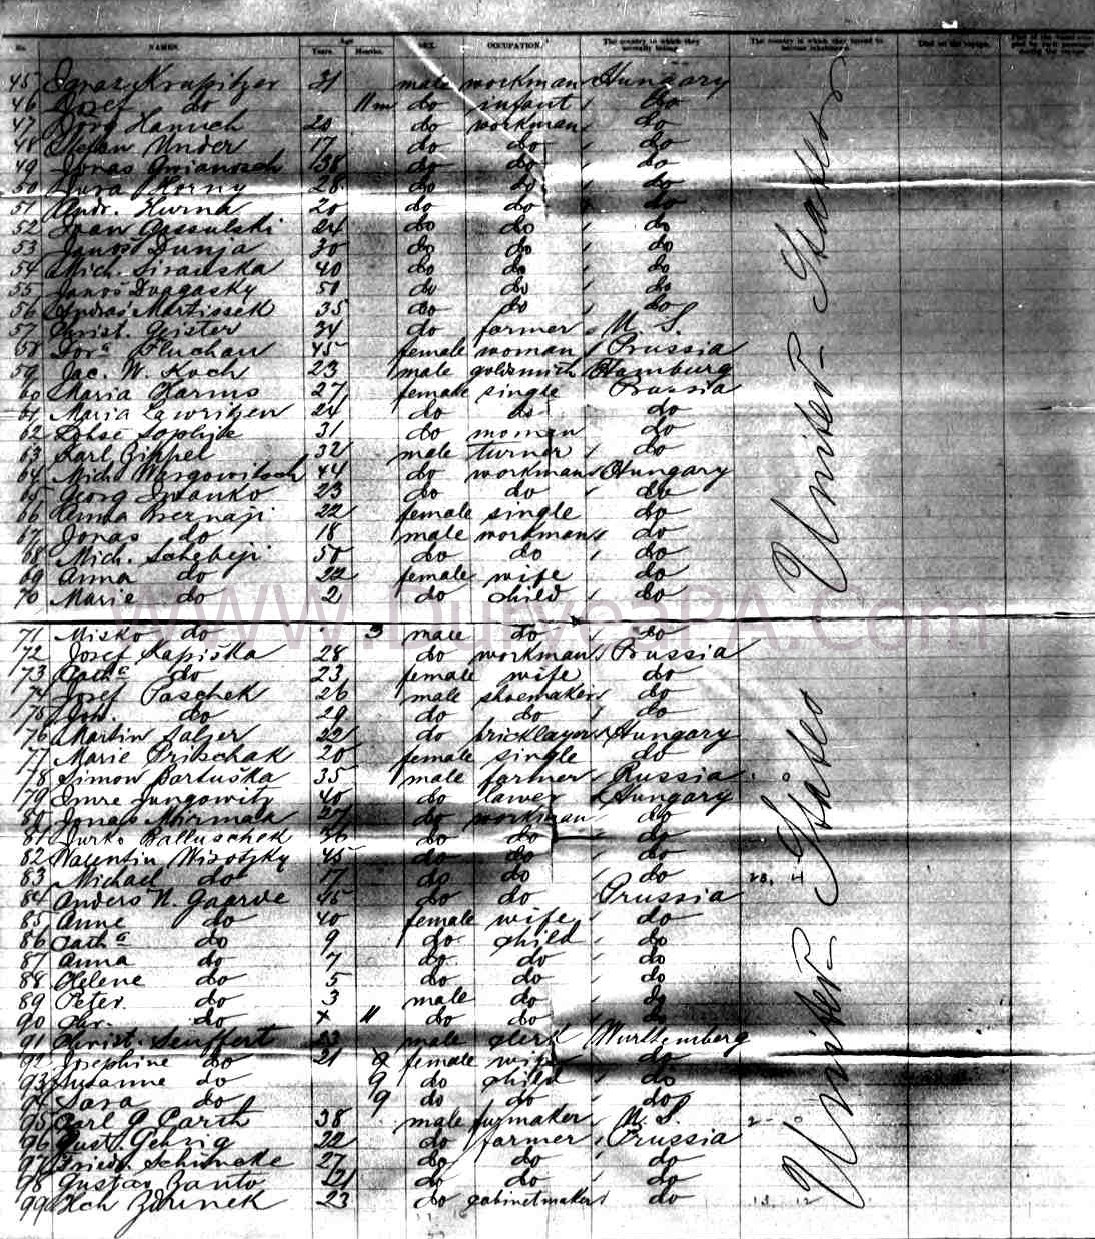 No. NAMES. Age Years. Months. SEX. OCCUPATION. The country to which they severally belong The country in which they intend to become inhabitants Died on the voyage.
45 Ignaz Krapitzer 31 male workman Hungary
46 Josef do 11m do infant do
47 Hanuch 20 do workman do
48 Stefan Under 17 do do do
49 Jonas 38 do do do
50 Jura Horny 28 do do do
51 Andr. Hurna 20 do do do
52 Ivan 24 do do do
53 Janos Dunja 30 do do do
54 Mich. Sirauska 40 do do do
55 Janos Dvagasky 50 do do do
56 Andras Martissek 35 do do do
57 Christ. Geister 34 do farmer U. S.
58 Dora Pluchau 45 female woman Prussia
59 Jac. W. Koch 23 male goldsmith Hamburg
60 Maria Harms 27 female single Prussia
61 Maria Lawritzen 24 do do do
62 Sophje 31 do woman do
63 Karl Zippel 32 male turner do
64 Mich. Wargowitsch 44 do workman Hungary
65 Georg Iwanko 23 do do do
66 Anna Bernaji 22 female single do
67 Jonas do 18 male workman do
68 Mich. Schebeji 50 do do do
69 Anna do 22 female wife do
70 Marie do 2 do child do
WWW.DuryeaPA.Com
71 Misko do 3 male do do
72 Josef Lapiska 28 do workman Prussia
73 Catha do 23 female wife do
74 Josef Paschek 26 male shoemaker do
75 Joh. do 29 do do do
76 Martin Salzer 22 do bricklayer Hungary
77 Marie Pritschak 20 female single do
78 Simon Bartuska 35 male farmer Russia
79 Imre Jungowitz 40 do lawer Hungary
80 Jonas Mirmala do workman do
81 Jurko Balluschek 36 do do do
82 Valentin Wisotzky 45 do do do
83 Michael do 17 do do do
84 Anders N. Gaarde 45 do do Prussia
85 Anne do 40 female wife do
86 Catha do 9 do child do
87 Anna do 7 do do do
88 Helene do 5 do do do
89 Peter do 3 male do do
90 do 11 do do do
91 Christ. Seuffert 23 male clerk Wurttemberg
92 Josephine do 21 female wife do
93 Susanne do 9 do child do
94 Sara do 9 do do do
95 Carl G Carth 38 male U. S.
96 Gust. Gehrig 22 do farmer Prussia
97 Friedr. Schimcke 27 do do do
98 Gustav Banto 21 do do do
99 Zdrinek 23 do cabinetmaker do
United States
United States